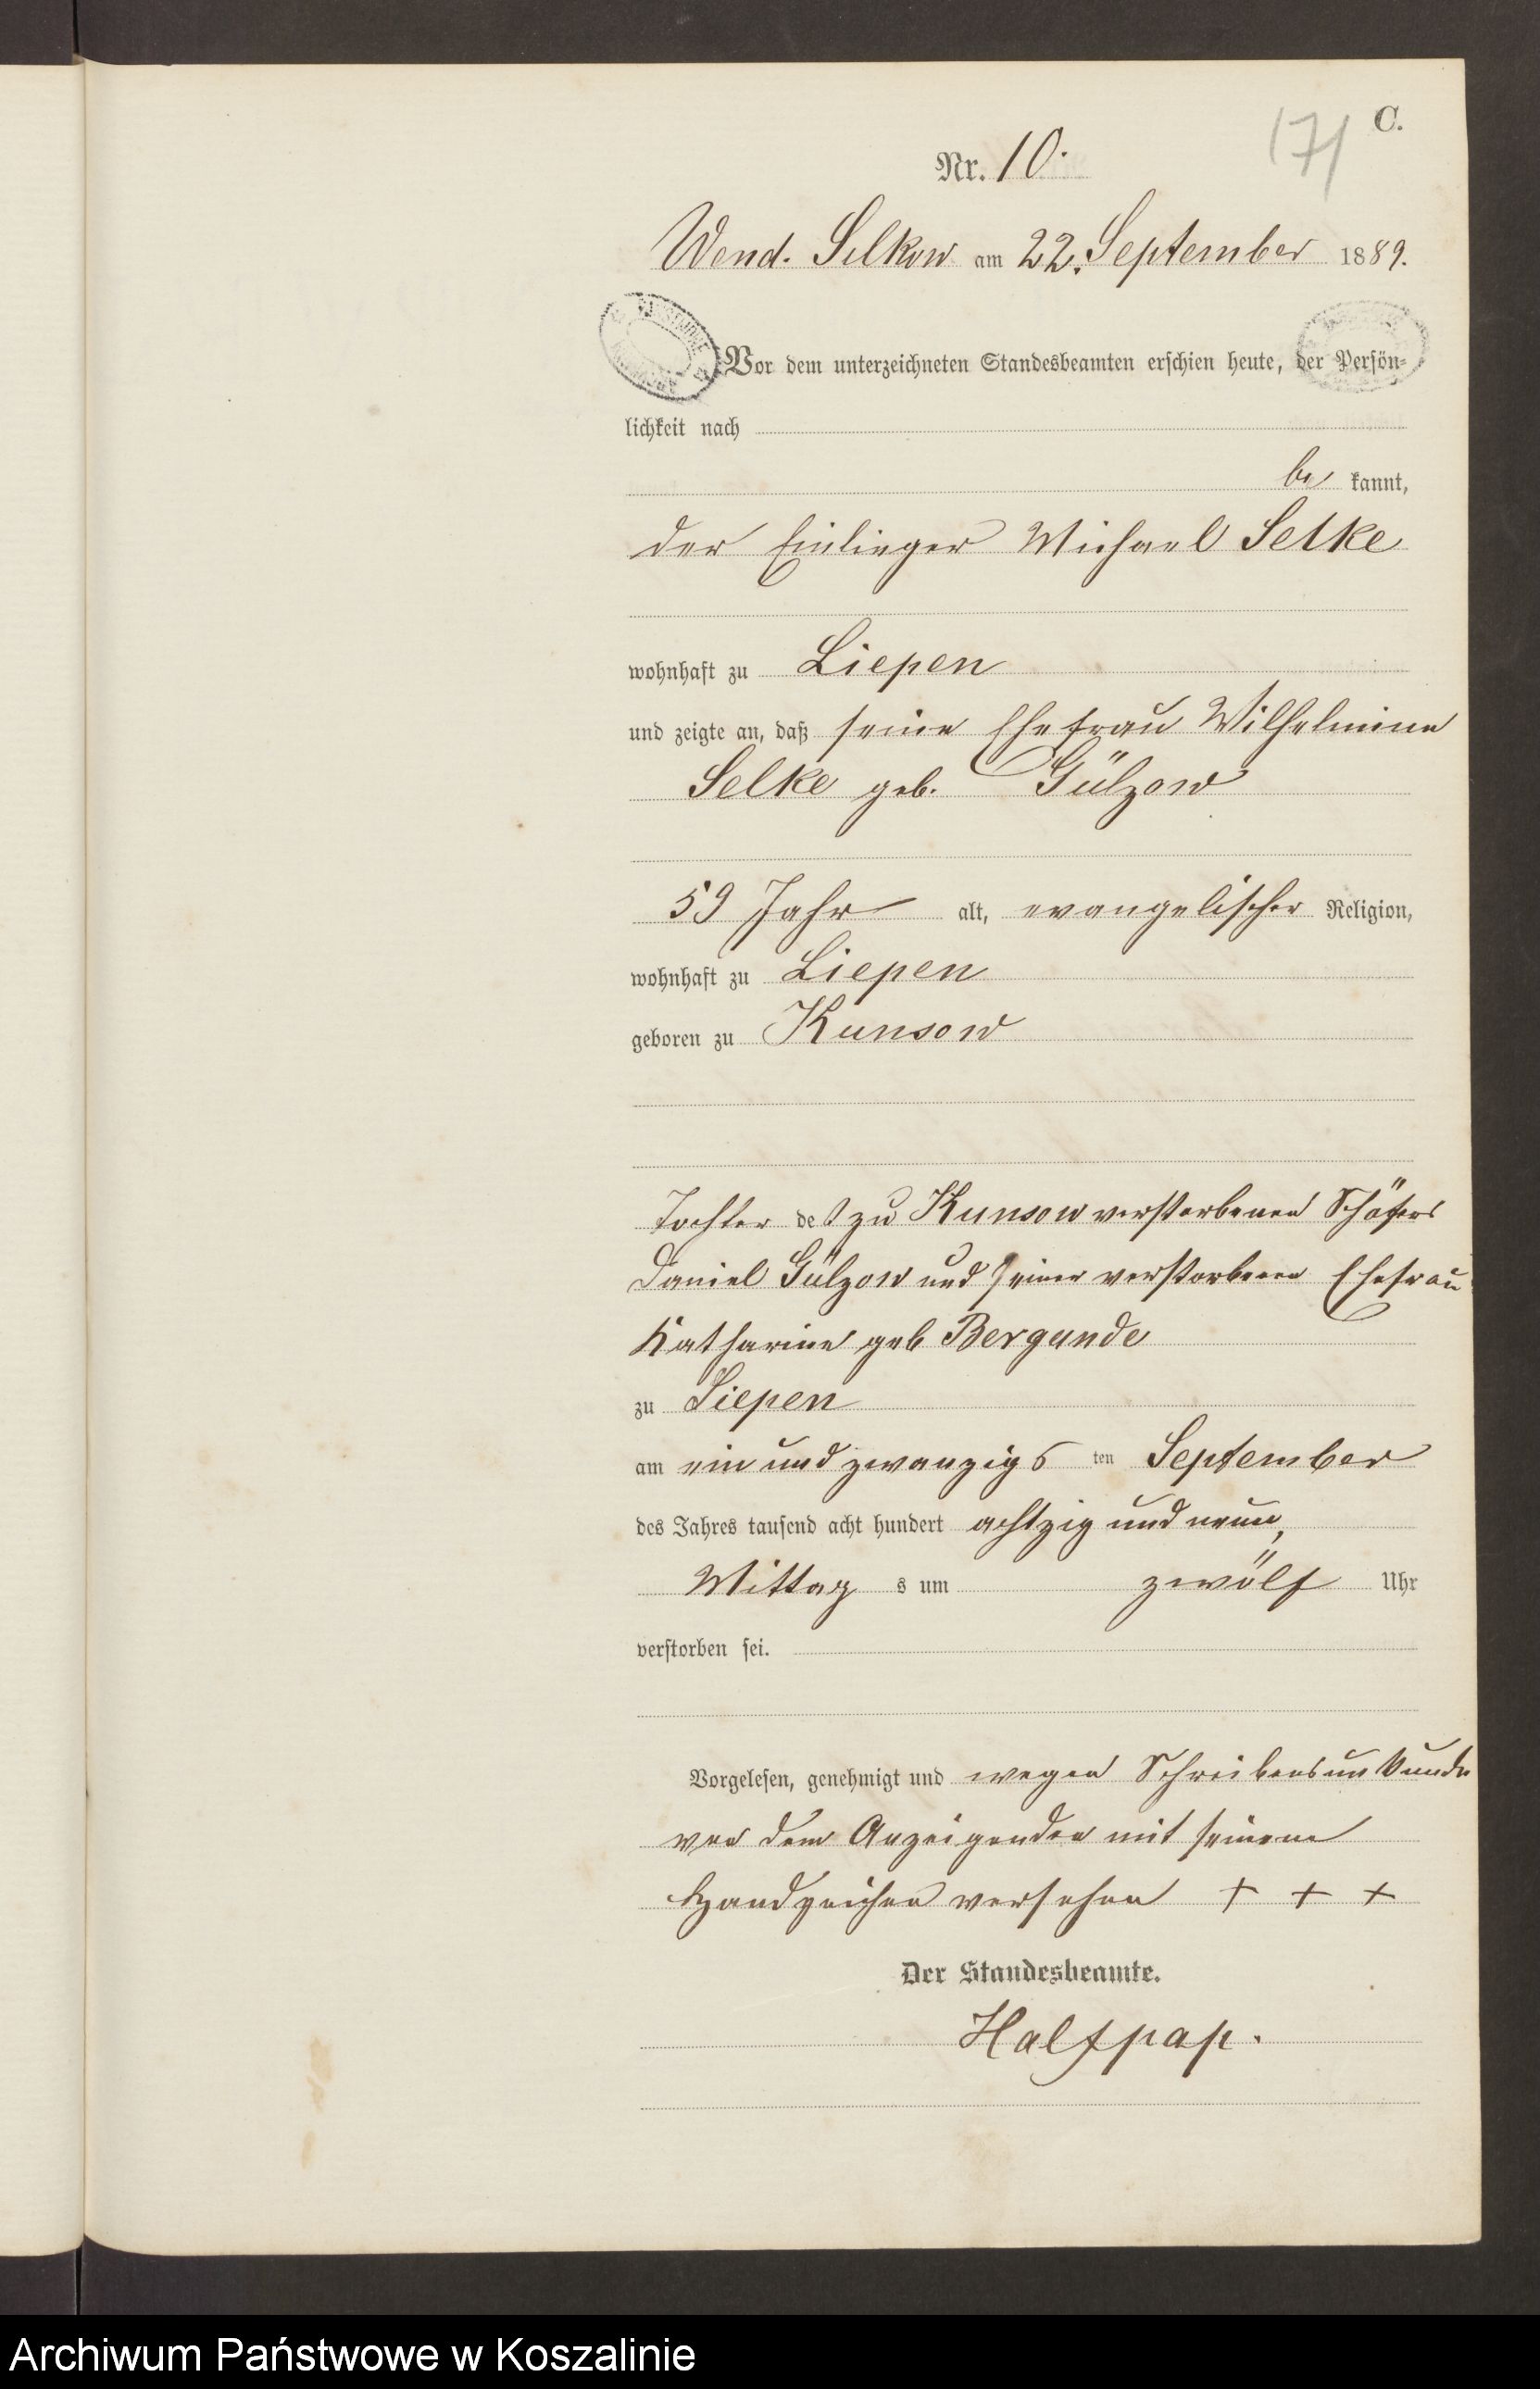 C.
171
Nr. 10.
Wend. Silkow am 22. September 1889.
Vor dem unterzeichneten Standesbeamten erschien heute, der Persön-
lichkeit nach
be kannt,
der Einlieger Michael Selke
wohnhaft zu Liepen
und zeigte an, daß seine Ehefrau Wilhelmine
Selke geb. Gülzow
59 Jahr alt, evangelischer Religion,
wohnhaft zu Liepen
geboren zu Kunsow
Tochter des zu Kunsow verstorbenen Schäfers
Daniel Gülzow und seiner verstorbenen Ehefrau
Katharine geb Bergande
zu Liepen
am ein und zwanzigs ten September
des Jahres tausend acht hundert achtzig und neun,
Mittag s um zwölf Uhr
verstorben sei.
Vorgelesen, genehmigt und wegen Schreibensunkunde
von dem Anzeigenden mit seinem
Handzeichen versehen + + +
Der Standesbeamte.
Halfpap.
Archiwum Państwowe w Koszalinie